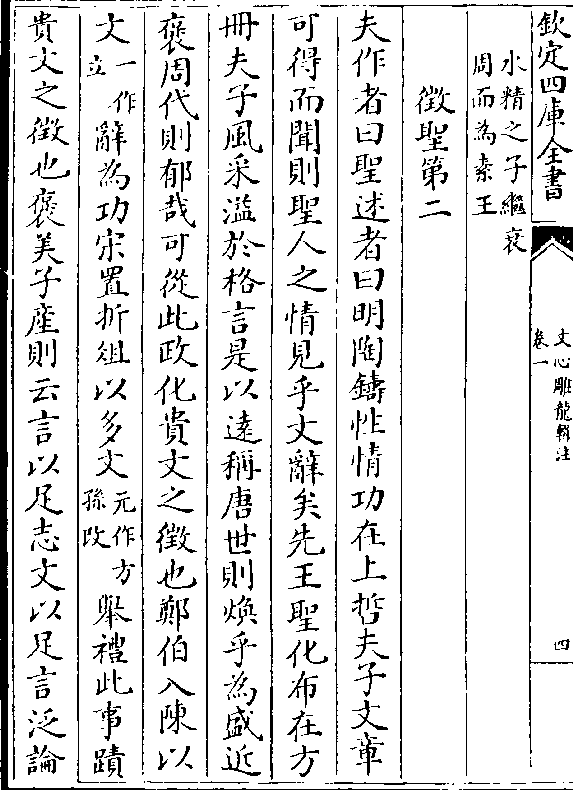 欽定四庫全書
水精之子繼衰
周而為素王
文心雕龍輯注
卷一
四
徴聖第二
夫作者曰聖述者曰明陶鑄性情功在上哲夫子文章
可得而聞則聖人之情見乎文辭矣先王聖化布在方
冊夫子風采溢於格言是以遠稱唐世則煥乎為盛近
褒周代則郁哉可從此政化貴文之徴也鄭伯入陳以
文一作立辭為功宋置折俎以多文元作方孫改舉禮此事蹟
貴文之徴也褒美子產則云言以足志文以足言泛論